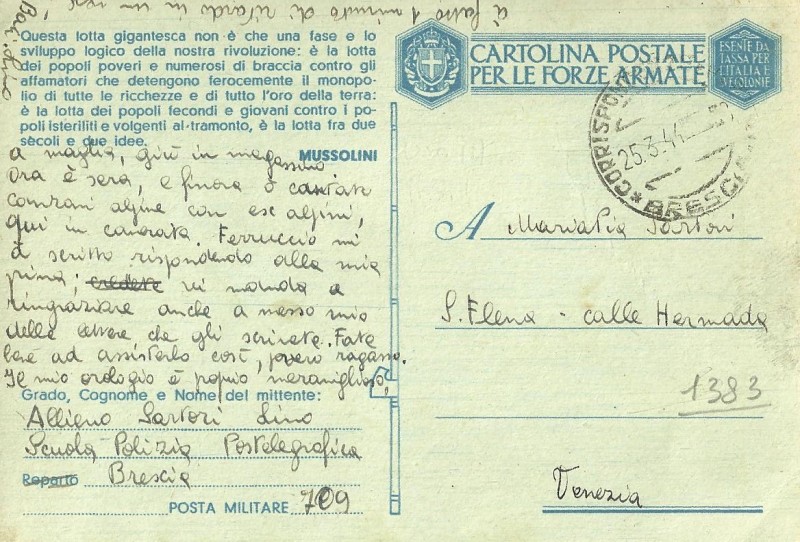 à fatto 1 minuto di ritardo in un mese
Baci, Lino
Questa lotta gigantesca non è che una fase e lo
sviluppo logico della nostra rivoluzione: è la lotta
dei popoli poveri e numerosi di braccia contro gli
affamatori che detengono ferocemente il monopo-
lio di tutte le ricchezze e di tutto l'oro della terra:
è la lotta dei popoli fecondi e giovani contro i po-
poli isteriliti e volgenti al tramonto, è la lotta fra due
secoli e due idee.
MUSSOLINI
a maglia, giù in magazzino
Ora è sera, e finora ò cantato
canzoni alpine con ex alpini,
qui in camerata. Ferruccio mi
à scritto rispondendo alla mia
prima; credete vi manda a
ringraziare anche a mezzo mio
delle lettere che gli scrivete. Fate
bene ad assisterlo così, povero ragazzo.
Il mio orologio è proprio meraviglioso,
Grado, Cognome e Nome del mittente:
Allievo Sartori Lino
Scuola Polizia Postelegrafica
Reparto Brescia
POSTA MILITARE 709
CARTOLINA POSTALE
PER LE FORZE ARMATE
ESENTE DA
TASSA PER
L'ITALIA E
LE COLONIE
25.3.44
BRESCIA
A MariaPia Sartori
S. Elena - calle Hermada
1383
Venezia